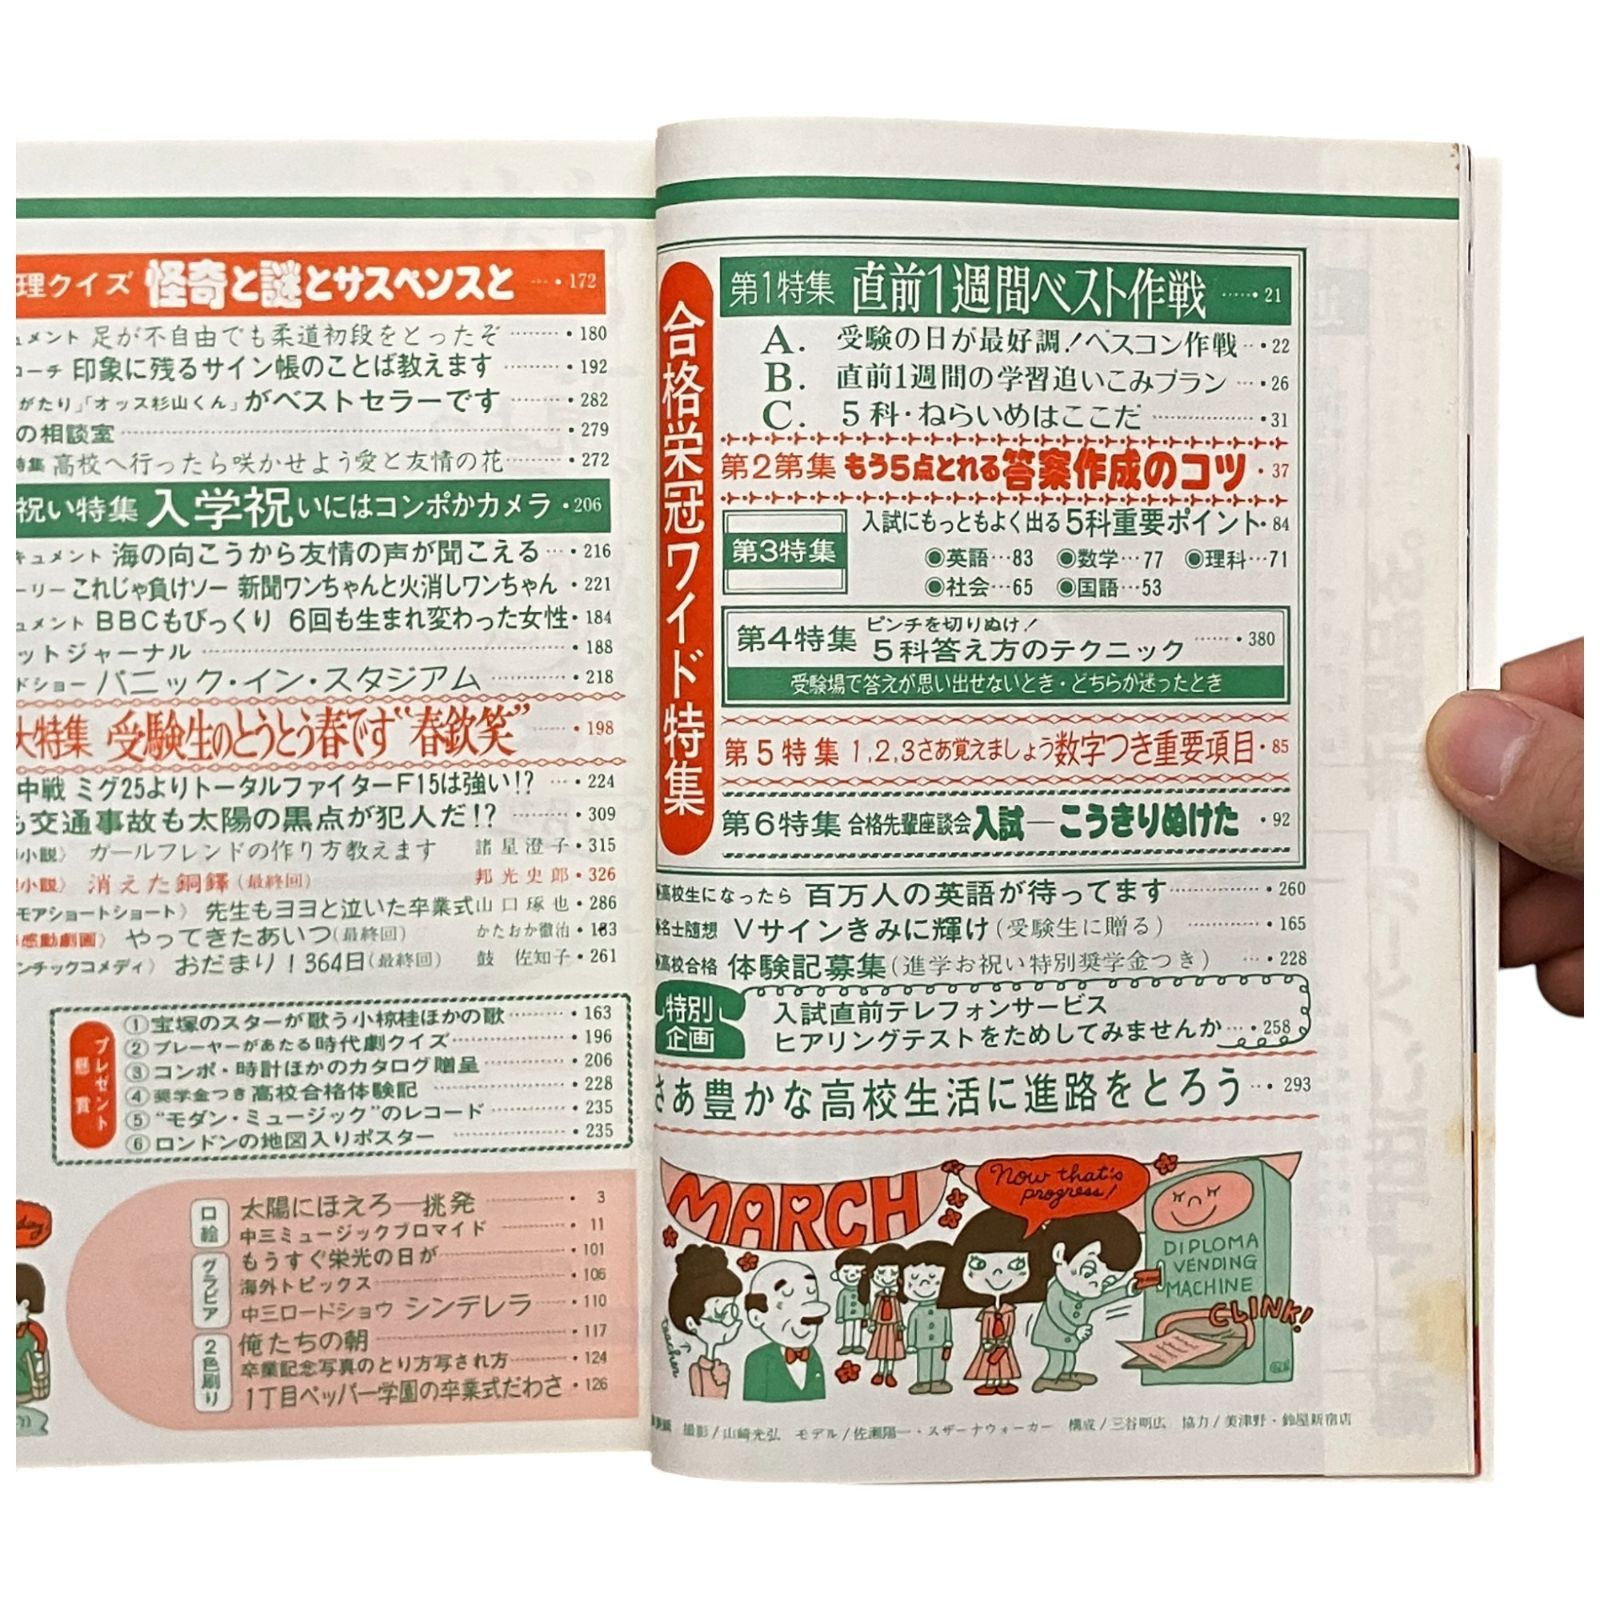 合格栄冠ワイド特集
第1特集 直前1週間ベスト作戦……・21
A. 受験の日が最好調!ベスコン作戦…・22
B. 直前1週間の学習追いこみプラン…・26
C. 5科・ねらいめはここだ……・31
第2第集 もう5点とれる答案作成のコツ・37
第3特集 入試にもっともよく出る5科重要ポイント・84
●英語…83 ●数学…77 ●理科…71
●社会…65 ●国語…53
第4特集 ピンチを切りぬけ!
5科答え方のテクニック……・380
受験場で答えが思い出せないとき・どちらか迷ったとき
第5特集 1,2,3さあ覚えましょう数字つき重要項目・85
第6特集 合格先輩座談会入試―こうきりぬけた・92
高校生になったら 百万人の英語が待ってます……・260
名士随想 Vサインきみに輝け(受験生に贈る)……・165
高校合格 体験記募集(進学お祝い特別奨学金つき)…・228
特別企画 入試直前テレフォンサービス
ヒアリングテストをためしてみませんか…・258
さあ豊かな高校生活に進路をとろう…・293
MARCH
Now that's progress!
teacher
DIPLOMA
VENDING
MACHINE
CLINK!
撮影/山崎光弘 モデル/佐瀬陽一・スザーナウォーカー 構成/三谷明広 協力/美津野・鈴屋新宿店
理クイズ 怪奇と謎とサスペンスと…・172
ュメント 足が不自由でも柔道初段をとったぞ……・180
コーチ 印象に残るサイン帳のことば教えます……・192
がたり」「オッス杉山くん」がベストセラーです……・282
の相談室……・279
特集 高校へ行ったら咲かせよう愛と友情の花……・272
祝い特集 入学祝いにはコンポかカメラ・206
キュメント 海の向こうから友情の声が聞こえる…・216
ーリー これじゃ負けソー 新聞ワンちゃんと火消しワンちゃん・221
ュメント BBCもびっくり 6回も生まれ変わった女性・184
ットジャーナル……・188
ドショー パニック・イン・スタジアム……・218
大特集 受験生のとうとう春です“春欽笑”……・198
中戦 ミグ25よりトータルファイターF15は強い!?…・224
も交通事故も太陽の黒点が犯人だ!?……・309
小説〉 ガールフレンドの作り方教えます 諸星澄子・315
小説〉 消えた銅鐸(最終回) 邦光史郎・326
モアショートショート〉 先生もヨヨと泣いた卒業式 山口琢也・286
感動劇画〉 やってきたあいつ(最終回) かたおか徹治・133
ンチックコメディ〉 おだまり!364日(最終回) 鼓 佐知子・261
プレゼント
懸賞
①宝塚のスターが歌う小椋桂ほかの歌……・163
②プレーヤーがあたる時代劇クイズ……・196
③コンポ・時計ほかのカタログ贈呈……・206
④奨学金つき高校合格体験記……・228
⑤“モダン・ミュージック”のレコード……・235
⑥ロンドンの地図入りポスター……・235
口絵
太陽にほえろ―挑発……・3
中三ミュージックブロマイド……・11
グラビア
もうすぐ栄光の日が……・101
海外トピックス……・106
中三ロードショウ シンデレラ……・110
2色刷り
俺たちの朝……・117
卒業記念写真のとり方写され方……・124
1丁目ペッパー学園の卒業式だわさ・126